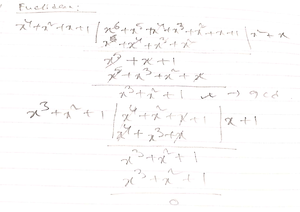 Euclidian:
x⁴+x²+x+1 | x⁶+x⁵+x⁴+x³+x²+x+1 | x²+x
x⁶+x⁴+x³+x²
x⁵+x+1
x⁵+x³+x²+x
x³+x²+1 → gcd
x³+x²+1 | x⁴+x²+x+1 | x+1
x⁴+x³+x
x³+x²+1
x³+x²+1
0